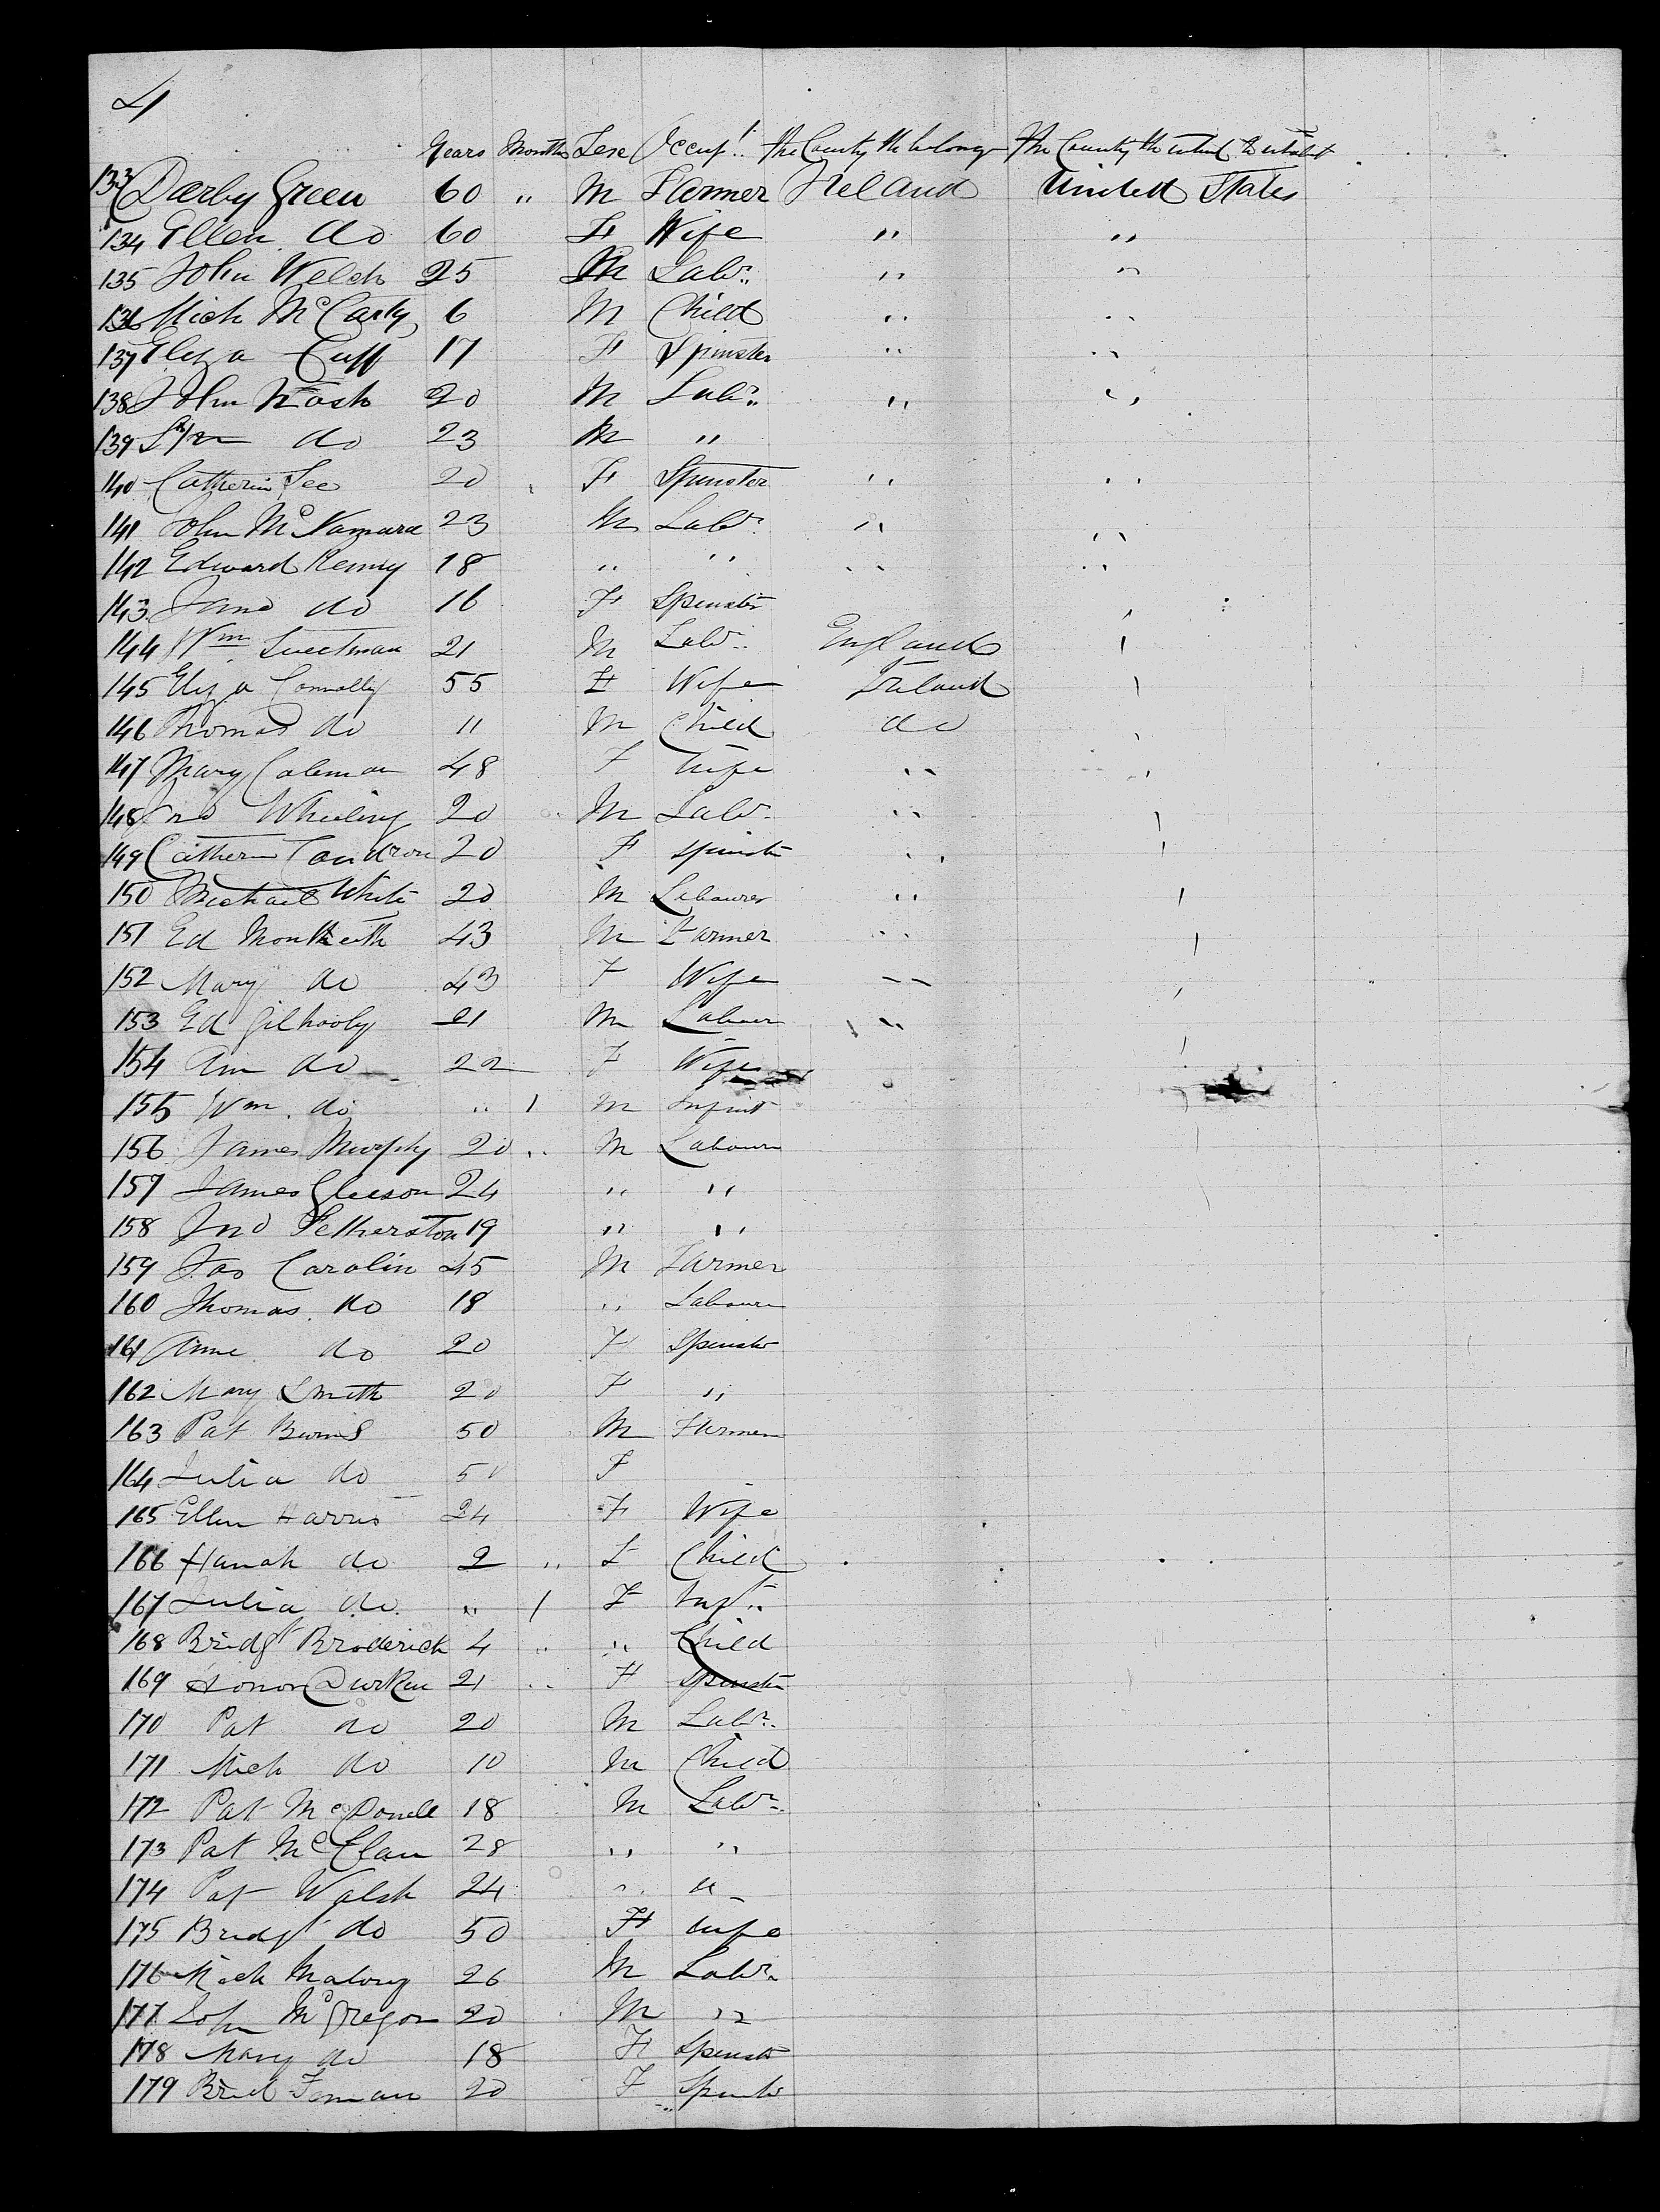 4
Years Months Sexe Occup.. The County the belong The County the intend to inhabit
133 Darby Green 60 " M Farmer Ireland United States
134 Ellen do 60 F Wife " "
135 John Welch 25 M Labr. " "
136 Mich McCarty 6 M Child " "
137 Eliza Cuff 17 F Spinster " "
138 John Nash 20 M Labr. " "
139 do 23 M "
140 Catherin Lee 20 F Spinster " "
141 John McNamara 23 M Labr. " "
142 Edward Kenny 18 " " " "
143 Jane do 16 F Spinstr "
144 Wm Sweetman 21 M Labr. England "
145 Eliza Connolly 55 F Wife Ireland "
146 Thomas do 11 M Child do "
147 Mary Coleman 48 F Wife " "
148 Jno Wheeling 20 M Labr. " "
149 Cathern Condron 20 F Spinstr " "
150 Michael White 20 M Labourer " "
151 Ed Monteith 43 M Farmer " "
152 Mary do 43 F Wife " "
153 Ed Gilhooly 21 M Labour " "
154 Ann do 22 F Wife "
155 Wm. do " 1 M Infint
156 James Murphy 20 " M Labour
157 James Gleeson 24 " "
158 Jno Fetherston 19 " "
159 Jas Carolin 45 M Farmer
160 Thomas do 18 " Labour
161 Anne do 20 F Spinstr
162 Mary Smith 20 F "
163 Pat Burns 50 M Farmer
164 Julia do 50 F
165 Ellen Harris 24 F Wife
166 Hanah do 2 " F Child
167 Julia do " 1 F Inft.
168 Bridgt Broderick 4 " " Child
169 Honor Durkin 21 " F Spinstr
170 Pat do 20 M Labr.
171 Mich do 10 M Child
172 Pat McDonell 18 M Labr.
173 Pat 28 " "
174 Pat Walsh 24 " "
175 Bridgt do 50 F Wife
176 Mich Malony 26 M Labr.
177 John McGregor 20 M "
178 Mary do 18 F Spinstr
179 Brid 20 F Spinstr